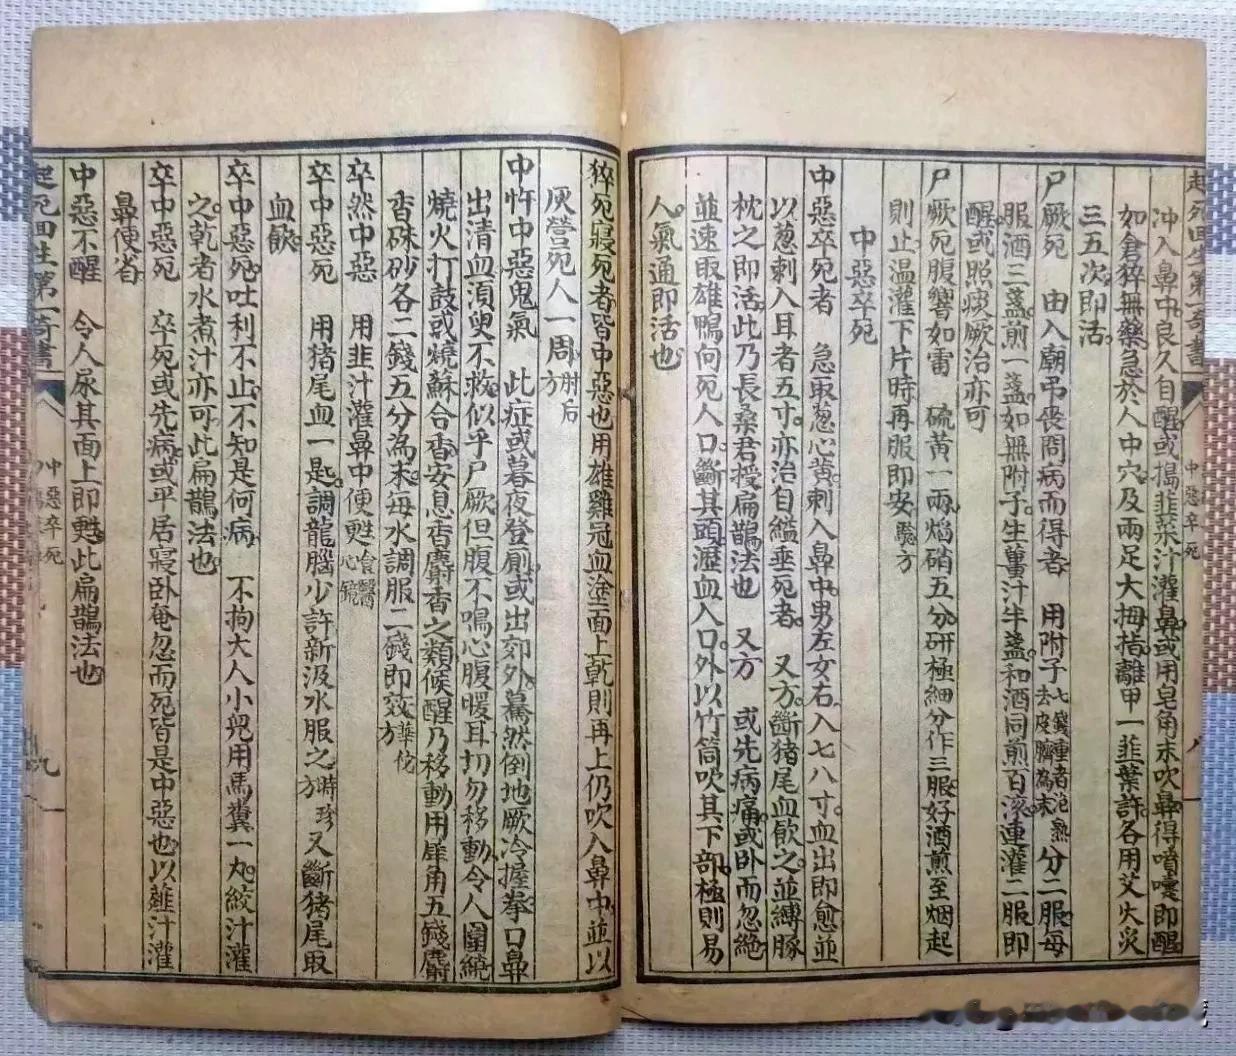 起死回生第一奇書
中惡卒死
八
冲入鼻中。良久自醒。或搗韭菜汁灌鼻。或用皂角末吹鼻得噴嚏即醒
如倉猝無藥。急於人中穴及兩足大拇指離甲一韭葉許。各用艾火灸
三五次即活。
尸厥死 由入廟弔喪問病而得者 用附子七錢重者泡熱去皮臍為末分二服。每
服酒三盞。煎一盞。如無附子。生薑汁半盞和酒同煎百滾。連灌二服即
醒。或照痰厥治亦可
尸厥死腹響如雷 硫黃一兩。焰硝五分。研極細分作三服。好酒煎至烟起
則止。溫灌下片時再服即安驗方
中惡卒死
中惡卒死者 急取葱心黃。刺入鼻中。男左女右。入七八寸。血出即愈。並
以葱刺入耳者五寸。亦治自縊垂死者。 又方。斷猪尾血飲之。並縛豚
枕之即活。此乃長桑君授扁鵲法也 又方 或先病痛。或卧而忽絶
並速取雄鴨向死人口。斷其頭。瀝血入口。外以竹筒吹其下部。極則易
人。氣通即活也
猝死寢死者皆中惡也。用雄雞冠血塗面上。乾則再上。仍吹入鼻中。並以
灰營死人一周。肘后方
中忤中惡鬼氣 此症或暮夜登厠。或出郊外。驀然倒地。厥冷握拳。口鼻
出清血。須臾不救。似乎尸厥。但腹不鳴。心腹暖耳。切勿移動。令人圍繞
燒火打鼓。或燒蘇合香安息香麝香之類。候醒乃移動。用犀角五錢。麝
香硃砂各二錢五分為末。每水調服二錢即效華佗方
卒然中惡 用韭汁灌鼻中便甦食醫心鏡
卒中惡死 用猪尾血一匙。調龍腦少許。新汲水服之時珍方又斷猪尾取
血飲。
卒中惡死。吐利不止。不知是何病。 不拘大人小兒。用馬糞一丸。絞汁灌
之。乾者水煮汁亦可。此扁鵲法也
卒中惡死 卒死或先病。或平居寢卧奄忽而死。皆是中惡也。以薤汁灌
鼻便省。
中惡不醒 令人尿其面上即甦。此扁鵲法也
起死回生第一奇書
中惡卒死
九